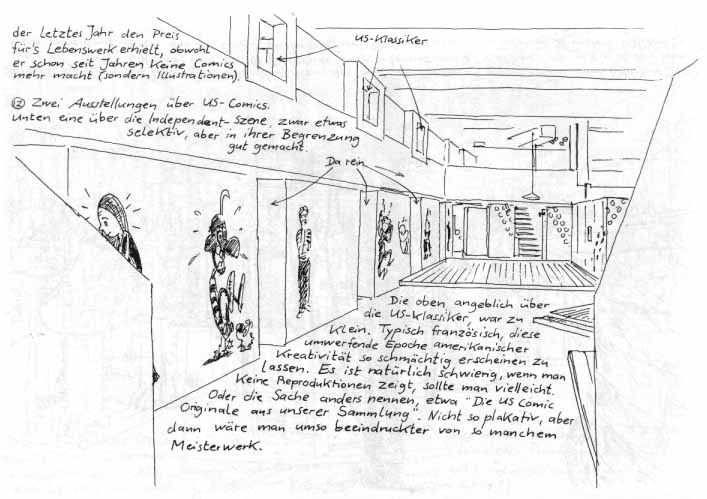 der letztes Jahr den Preis
für's Lebenswerk erhielt, obwohl
er schon seit Jahren keine Comics
mehr macht (sondern Illustrationen).
⑫ Zwei Ausstellungen über US-Comics.
Unten eine über die Independent-Szene, zwar etwas
selektiv, aber in ihrer Begrenzung
gut gemacht.
US-Klassiker
Da rein
Die oben, angeblich über
die US-Klassiker, war zu
klein. Typisch französisch, diese
umwerfende Epoche amerikanischer
Kreativität so schmächtig erscheinen zu
lassen. Es ist natürlich schwierig, wenn man
keine Reproduktionen zeigt, sollte man vielleicht.
Oder die Sache anders nennen, etwa "Die US Comic
Originale aus unserer Sammlung". Nicht so plakativ, aber
dann wäre man umso beeindruckter von so manchem
Meisterwerk.